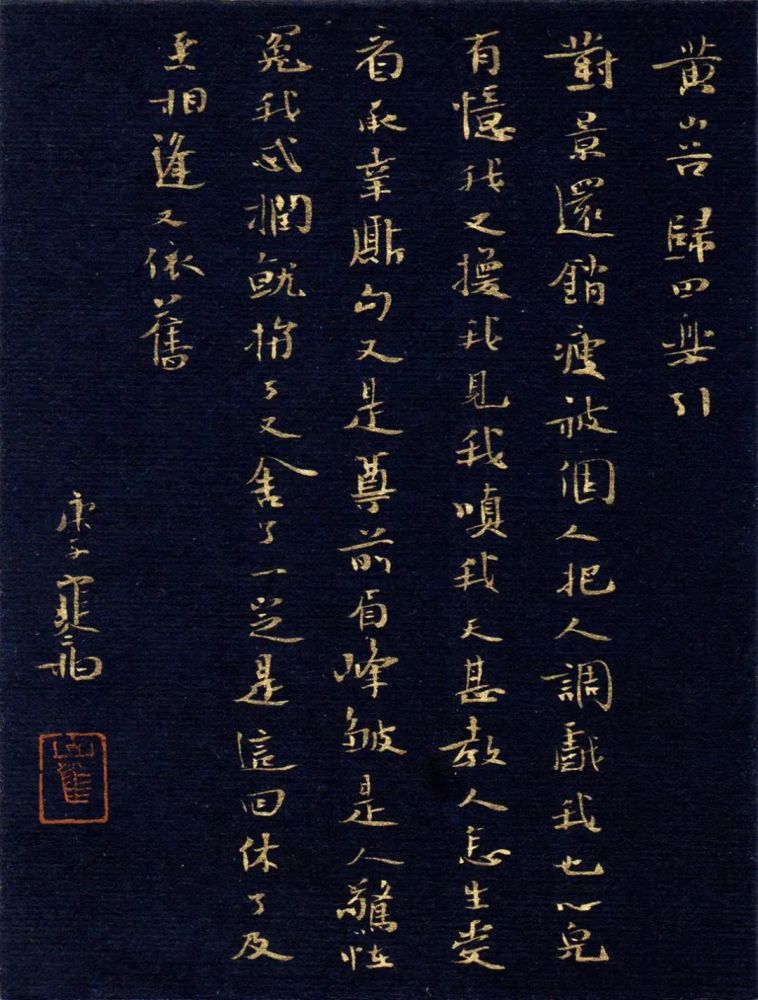 黄山谷歸田樂引
對景還銷瘦被個人把人調戲我也心兒
有憶我又喚我見我嗔我天甚教人怎生受
看承幸廝勾又是尊前眉峰皺是人驚怪
冤我忒撋就拚了又舍了一定是這回休了及
至相逢又依舊
庚子